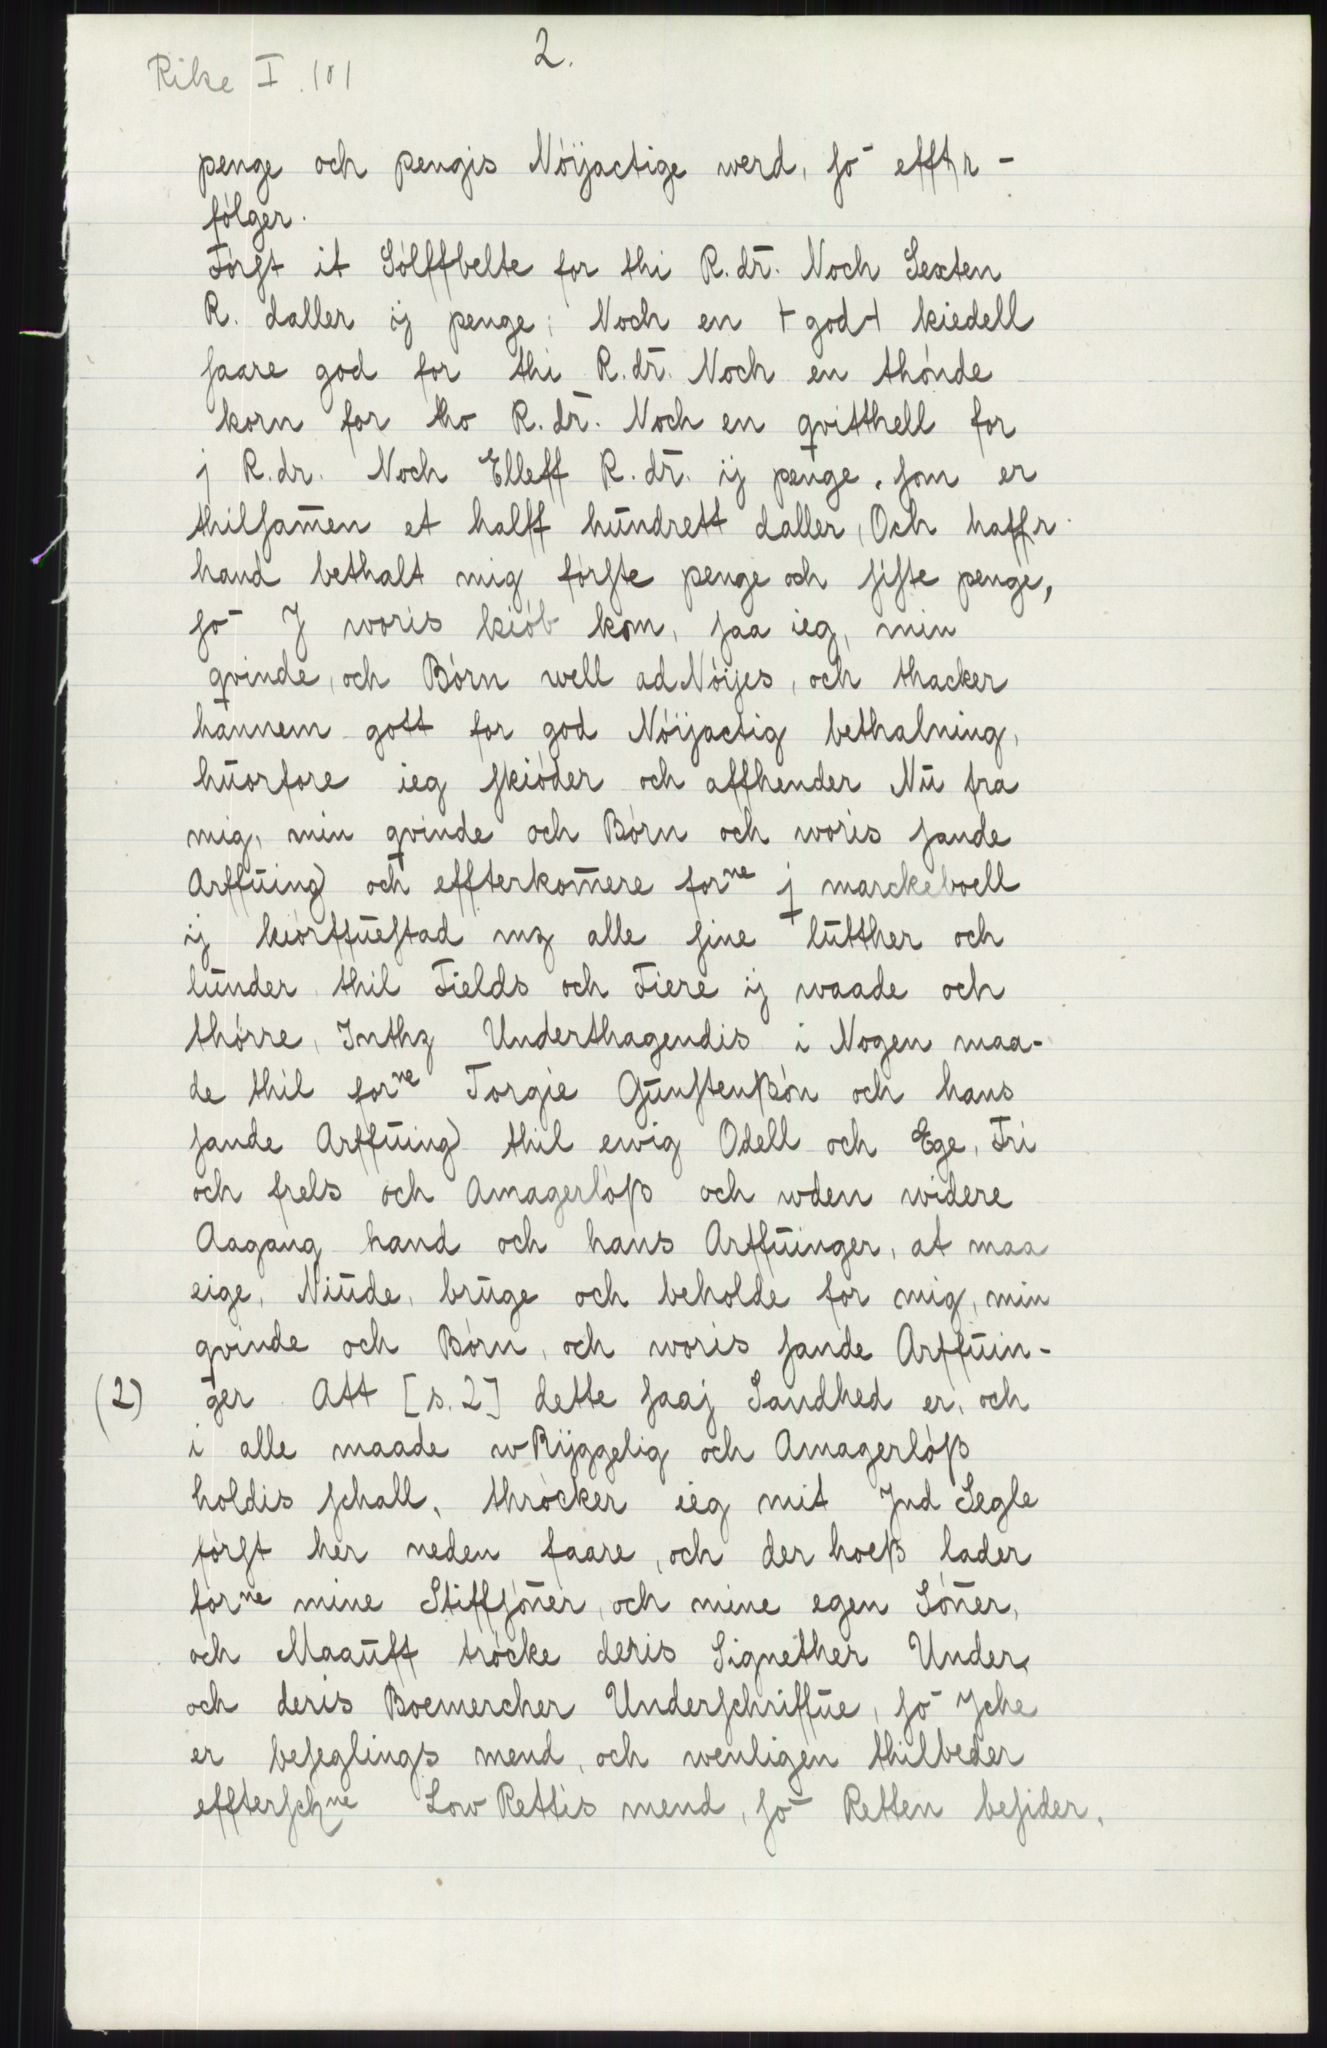 Rike I. 101
2.
penge och pengis Nóÿactige werd, so̅ efft̅r-
fólger.
Fórst it Sólffbelte for thi R.dr̅. Noch Sexten
R. daller ij penge; Noch en + god + kiedell
saare god for thi R.dr̅. Noch en thónde
korn for tho R.dr̅. Noch en qvitthell for
j R.dr. Noch Elleff R.dr̅. ij penge, som er
thilsam̅en et halff hŭndrett daller, Och haffr
hand bethalt mig fórste penge och siste penge,
so̅ J woris kiób kom, saa ieg, min
qvinde, och Bórn well ad Nóijes, och thacker
hannem gott for god Nóÿactig bethalning,
hŭorfore ieg skióder och affhender Nŭ fra
mig, min qvinde och Bórn och woris sande
Arffŭing) och effterkom̅ere forⁿᵉ j marckeboell
ij kiórffŭestad mz alle sine lŭtther och
lŭnder thil Fields och Fiere ij waade och
thórre, Inthz Underthagendis i Nogen maa-
de thil forⁿᵉ Torgie Gŭnstenßón och hans
sande Arffŭing) thil ewig Odell och Ege, Fri
och frels och Amagerlóß och wden widere
Aagang hand och hans Arffŭinger, at maa
eige, Niŭde, brŭge och beholde for mig, min
qvinde och Bórn, och woris sande Arffŭin-
(2) ger Att [s. 2] dette saaj Sandhed er, och
i alle maade wRÿggelig och Amagerlóß
holdis schall, thrócker ieg mit Jnd Segle
fórst her neden faare, och der hoeß lader
forⁿᵉ mine Stiffsón̅er, och mine egen Són̅er,
och Maaŭff trócke deris Signether Under,
och deris Boemercher Underschriffŭe, so̅ Jcke
er beseglings mend, och wenligen thilbeder
effterschⁿᵉ Low Rettis mend, so̅ Retten besider,